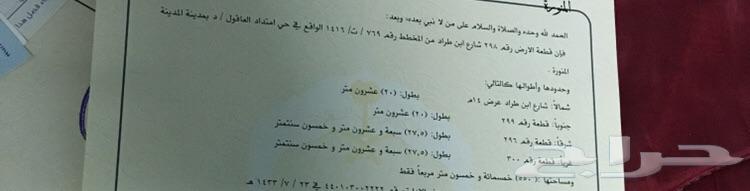 المنورة
الحمد لله وحده والصلاة والسلام على من لا نبي بعده، وبعد:
فإن قطعة الارض رقم ٢٩٨ شارع ابن طراد من المخطط رقم ٧٦٩ / ت/ ١٤١٦ الواقع في حي امتداد العاقول / د بمدينة المدينة
المنورة .
وحدودها وأطوالها كالتالي:
شمالاً: شارع ابن طراد عرض ١٤م بطول: (٢٠) عشرون متر
جنوباً: قطعة رقم ٢٩٩ بطول: (٢٠) عشرون متر
شرقاً: قطعة رقم ٢٩٦ بطول: (٢٧,٥) سبعة و عشرون متر و خمسون سنتمتر
غرباً: قطعة رقم ٣٠٠ بطول: (٢٧,٥) سبعة و عشرون متر و خمسون سنتمتر
ومساحتها: (٥٥٠) خمسمائة و خمسون متر مربعاً فقط
في ٢٣ / ٧ / ١٤٣٣ هـ
حراج